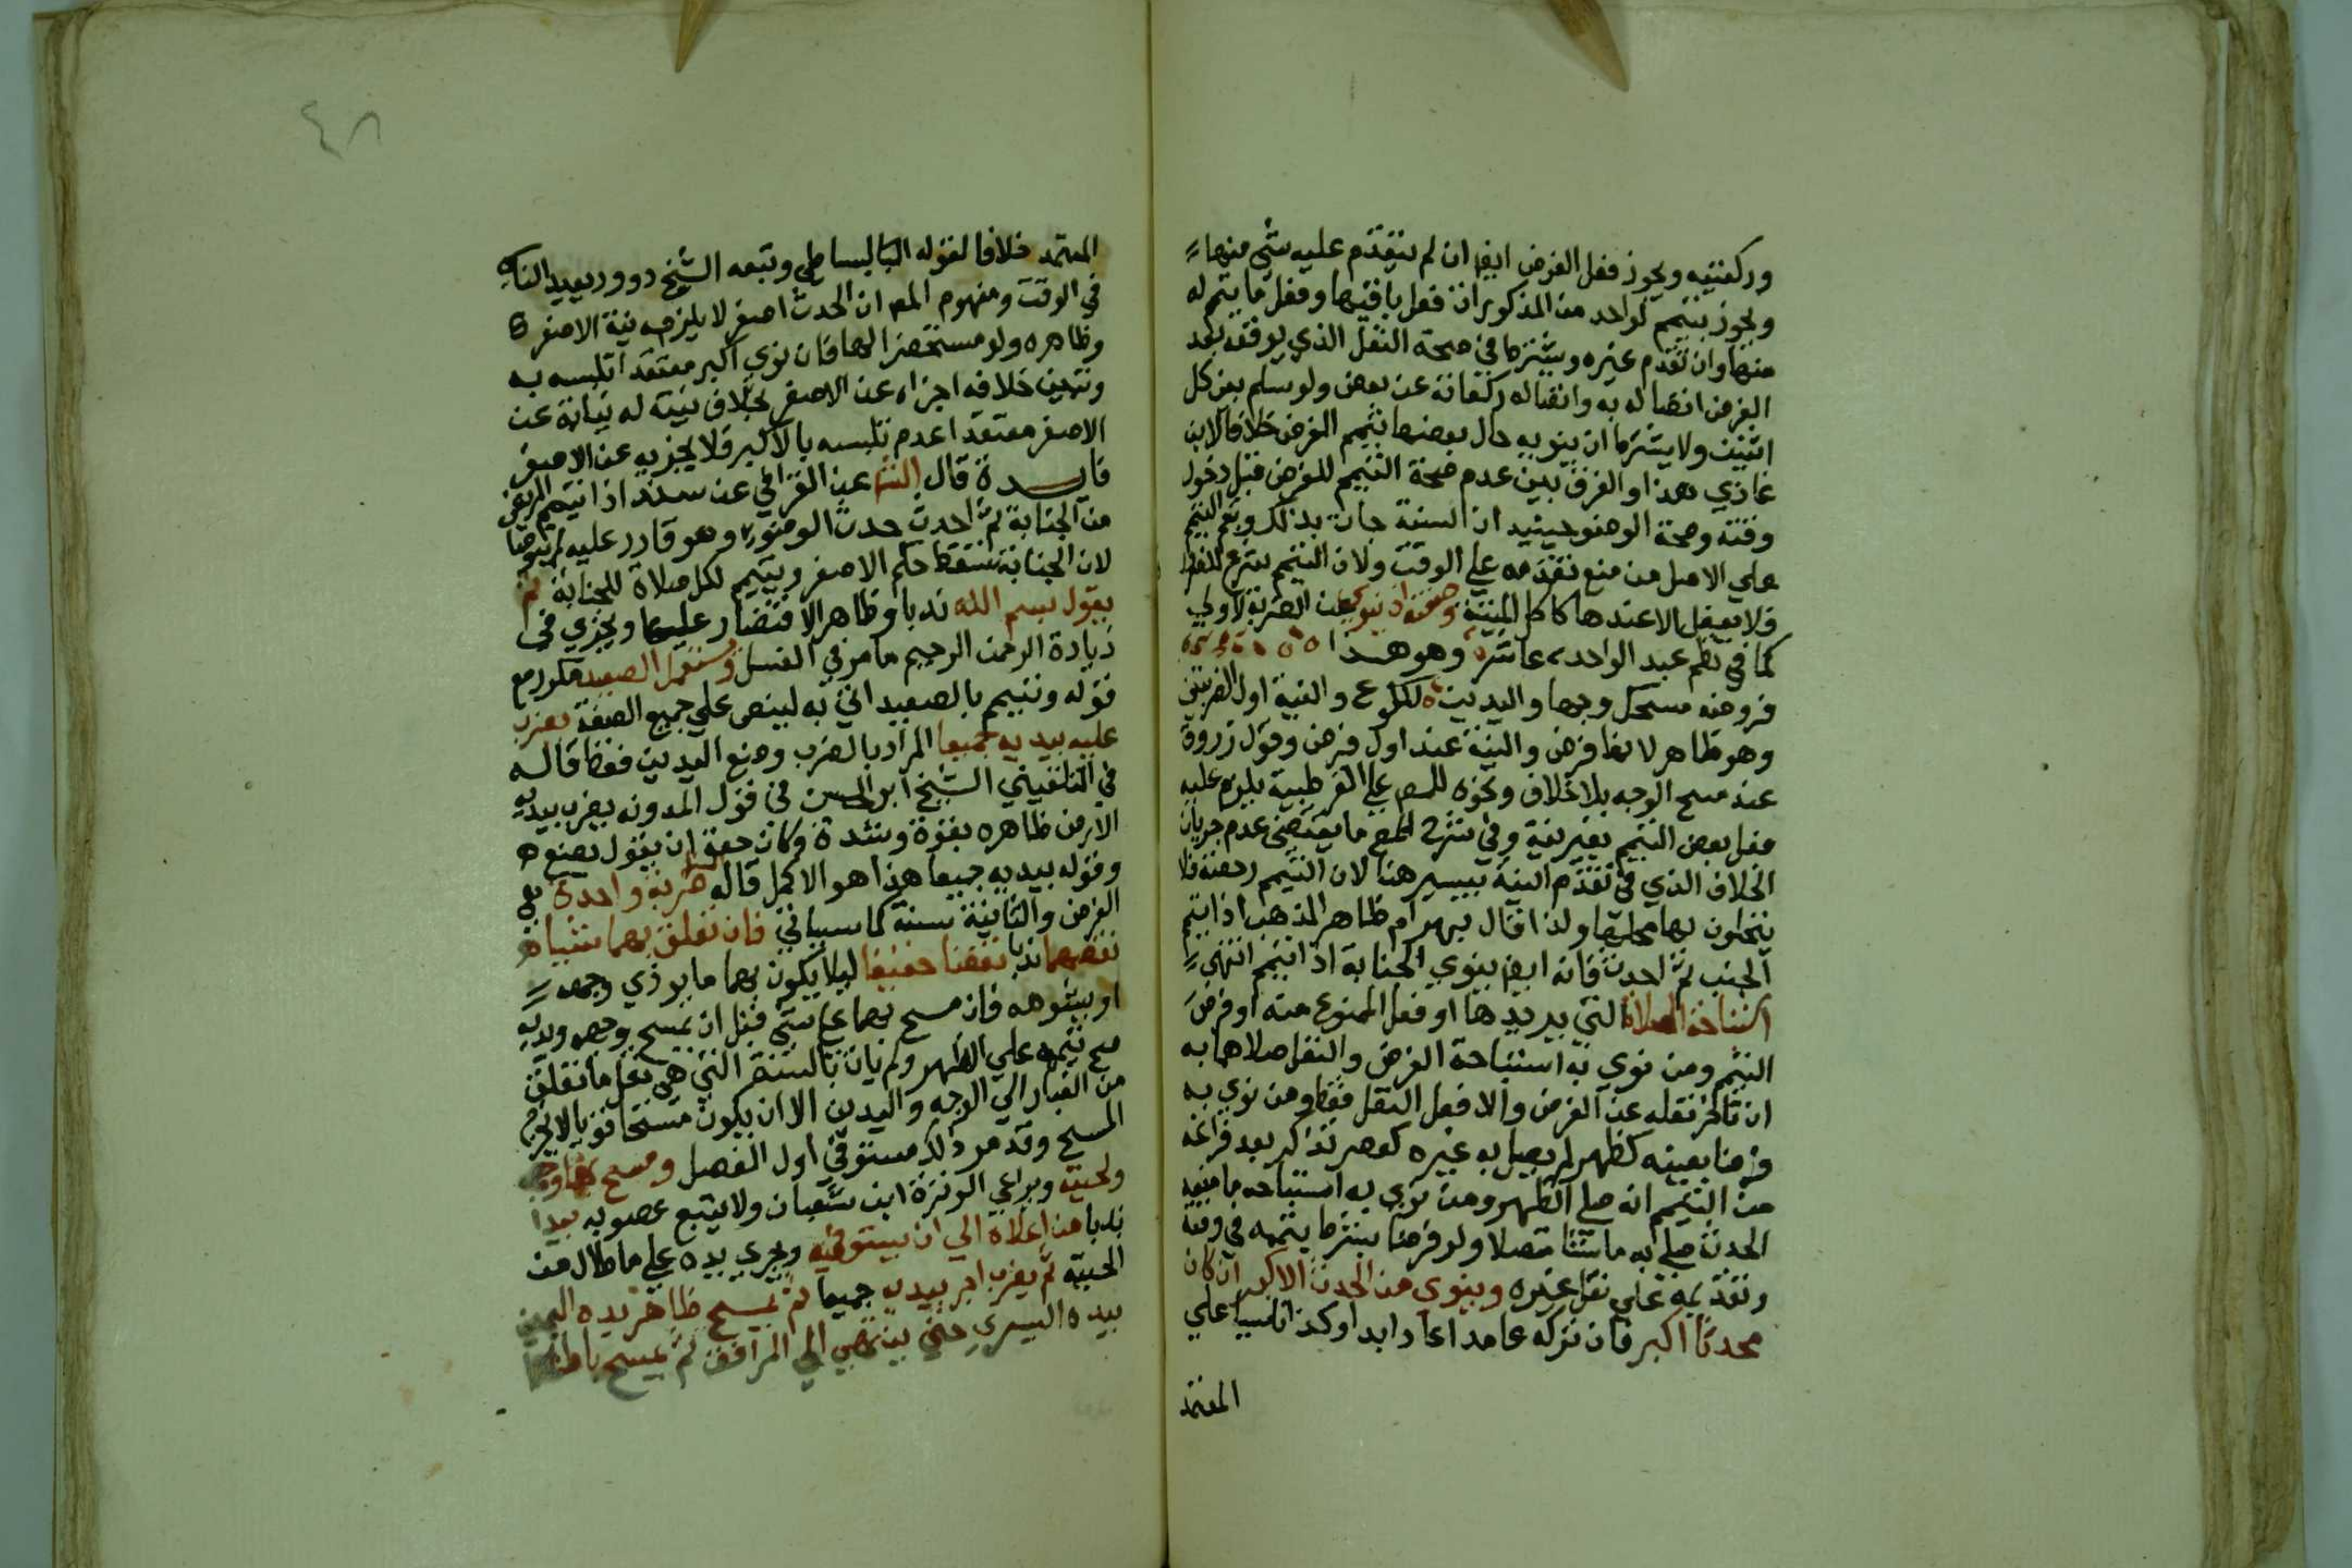 وركعتيه ويجوز فعل الفرض ايضا ان لم يتقدم عليه شي منها
ويجوز بتيمم لواحد من المذكورات فعل باقيها وفعل ما يتم له
منها وان تقدم غيره ويشترط في صحة النفل الذي يوقعه بعد
الفرض اتصاله به واتصاله ركعاته عن بعض ولو سلم بعن كل
اثنين ولا يشترط ان ينويه حال بعضها بتيمم الفرض خلافا لابن
غازي هذا والفرق بين عدم صحة التيمم للفرض قبل دخول
وقته وصحة الوضو حينيد ان السنة جات بذلك وبقي التيمم
علي الاصل من منع تقدمه علي الوقت ولان التيمم شرع
فلا يفعل الا عندها كاكل الميتة وصفته ان ينوي عند الضربة الاولي
كما في نظم عبد الواحد عاشر وهو هذا
فروضه مسحك وجها واليدين للكوع والنية اول الضربتين
وهو ظاهر لانها فرض والنية عند اول فرض وقول زروق
عند مسح الوجه بلا خلاف ونحوه للمص علي القرطبية يلزم عليه
فعل بعض التيمم بغير نية وفي شرح المص ما يقتضي عدم جريان
الخلاف الذي في تقدم النية بيسير هنا لان التيمم رخصة فلا
يتجاوز بها محلها ولذا قال بهرام ظاهر المذهب اذا تيمم
الجنب ثم احدث فانه ايضا ينوي الجنابة اذا تيمم انتهي
استباحة الصلاة التي يريدها او فعل الممنوع منه او فرض
التيمم ومن نوي به استباحة الفرض والنفل صلاها به
ان تاخر نفله عن الفرض والا فعل النفل فقط ومن نوي به
فرضا بعينه كظهر لم يصل به غيره كعصر تذاكر بعد فراغه
من التيمم انه صلي الظهر ومن نوي به استباحه ما منعه
الحدث صلي به ماشا متصلا ولو فرضا بشرط يتمه في وقته
وتقديمه علي نفل غيره وينوي من الحدث الاكبر ان كان
محدثا اكبر فان تركه عامدا اعاد ابدا وكذا ناسيا علي
المعتمد
٤٨
المعتمد خلافا لقوله البساطي وتبعه الشيخ داوود يعيد الناسي
في الوقت ومفهوم المص ان الحدث اصغر لا يلزمه نية الاصغر
وظاهره ولو مستحضرا لها فان نوي اكبر معتقدا تلبسه به
وتبين خلافه اجزاه عن الاصغر بخلاف نيته له نيابة عن
الاصغر معتقدا عدم تلبسه بالاكبر فلا يجزيه عن الاصغر
فايدة قال التتا عن القرافي عن سند اذا تيمم المريض
من الجنابة ثم احدث حدث الوضوء وهو قادر عليه لم يتوضا
لان الجنابة تسقط حكم الاصغر ويتيمم لكل صلاة للجنابة ثم
يقول بسم الله ندبا وظاهر الاقتصار عليها ويجزي في
زيادة الرحمن الرحيم ما مر في الغسل ويستعمل الصعيد مكرر مع
قوله ونتيمم بالصعيد اتي به لينص علي جميع الصفة يضرب
عليه بيديه جميعا المراد بالضرب وضع اليدين فقط قاله
في التلقيني الشيخ ابو الحسن في قول المدونه يضرب بيديه
الارض ظاهره بقوة وشدة وكان حقه ان يقول يضع
وقوله بيديه جميعا هذا هو الاكمل قاله ضربة واحدة هي
الفرض والثانية سنة كما سياتي فان تعلق بهما شيا
نفضهما ندبا نفضا خفيفا ليلا يكون بهما ما يوذي وجهه
او يشوهه فان مسح بهما علي شي قبل ان يمسح وجهه ويديه
صح تيممه علي الظهر ولم يات بالسنة التي هي نقل ما تعلق
من الغبار الي الوجه واليدين الا ان يكون مسحا قويا
المسح وقد مر ذلك مستوفي اول الفصل ومسح بهما وجهه
ولحيته ويراعي الوترة ابن شعبان ولا يتبع غضونه يبدا
ندبا من اعلاه الي ان يستوفيه ويجري يده علي ما طال من
اللحية ثم يضرب اخر بيديه جميعا ثم يمسح ظاهر يده اليمين
بيده اليسري حتي ينتهي الي المرافق ثم يمسح